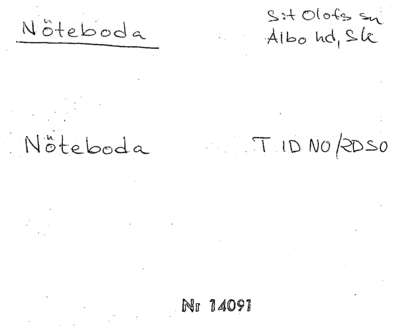 Nöteboda
S:t Olofs sn
Albo hd, Sk
Nöteboda
T ID NO/RDSO
Nr 14091